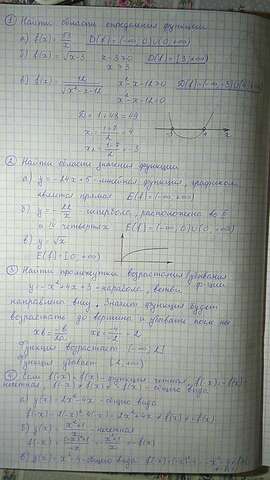 ① Найти области определения функции
а) f(x) = D(f) = (-∞; 0) ∪ (0; +∞)
б) f(x) = √x-3 x-3≥0 D(f) = [3; +∞)
x≥3
в) f(x) = 12/√x²-x-12 x²-x-12>0 D(f) = (-∞; -3) ∪ (4; +∞)
x²-x-12=0
D = 1+48=49
x₁ = 1+7/2 = 4
x₂ = 1-7/2 = -3
② Найти области значения функции
а) y = -24x+5 - линейная функция, графиком
является прямая E(f) = (-∞; +∞)
б) y = гипербола, расположена во II
и IV четвертях E(f) = (-∞; 0) ∪ (0; +∞)
в) y = √x
E(f) = [0; +∞)
③ Найти промежутки возрастания/убывания
y = -x²+4x+3 - парабола, ветви
направлены вниз. Значит функция будет
возрастать до вершины и убывать после неё
xв = -b/2a xв = -4/-2 = 2
Функция возрастает (-∞; 2]
Функция убывает [2; +∞)
④ Если f(-x) = f(x) - функция четная, f(-x) = -f(x) -
нечетная, f(-x) ≠ f(x) ≠ -f(x) - общего вида
а) y(x) = 2x²-4x - общего вида
f(-x) = 2(-x)²-4(-x) = 2x²+4x ≠ f(x) ≠ -f(x)
б) y(x) = - нечетная